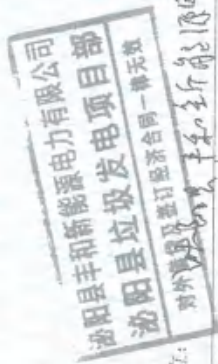 泌阳县丰和新能源电力有限公司
泌阳县垃圾发电项目部
对外担保及签订经济合同一律无效